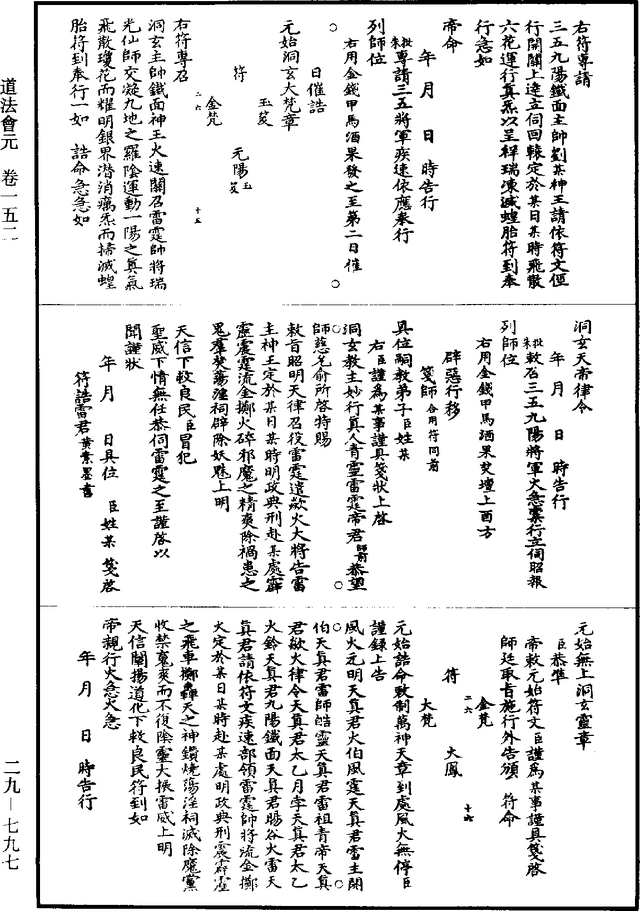 道法會元　卷一五二
右符專請
三五九陽鐵面主帥劉某神王請依符文便
行開關上達立伺回轅定於某日某時飛散
六花運行真炁以呈祥瑞凍滅蝗胎符到奉
行急如
帝命
年　月　日　時告行
批朱專請三五將軍疾速依應奉行
列師位
右用金錢甲馬酒果發之至第二日催
日催誥
元始洞玄大梵章
玉炁
符　元陽玉炁
金梵
二六　十五
右符專召
洞玄主帥鐵面神王火速關召雷霆師將瑞
光仙師交凝九地之羅陰運動一陽之真氣
飛散瓊花而耀明銀界潛消癘炁而掃滅蝗
胎符到奉行一如　誥命急急如
洞玄天帝律令
年　月　日　時告行
批朱敕召三五九陽將軍火急稟行立伺昭報
列師位
右用金錢甲馬酒果焚壇上酉方
辟惡行移
箋師合用符同前
具位嗣教弟子臣姓某
右臣謹為某事謹具箋狀上啓
洞玄教主妙行真人青靈雷霆帝君　恭望
師慈允俞所啓特賜
敕旨昭明天律召役雷霆遣歘火大將告雷
主神王定於某日某時明政典刑赴某處霹
靂震霆流金擲火碎邪魔之精爽除禍患之
鬼羣焚蕩淫祠辟除妖魅上明
天信下救良民臣冒犯
聖威下情無任恭伺雷霆之至謹啓以
聞謹狀
年　月　日具位　臣姓某　箋啓
符誥雷君黃素墨書
元始無上洞玄靈章
臣恭準
帝敕元始符文臣謹為某事謹具箋啓
師廷取旨施行外告頒　符命
金梵
二六
符　火鳳
大梵　十六
元始誥命敕制萬神天章到處風火無停臣
謹錄上告
風火元明天真君火伯風霆天真君雷主關
伯天真君雷師皓靈天真君雷祖青帝天真
君歘火律令天真君太乙月孛天真君太乙
火鈴天真君九陽鐵面天真君暘谷火雷天
真君請依符文疾速部領雷霆師將流金擲
火定於某日某時赴某處明政典刑震霹靂
之飛車擲轟天之神鑽燒蕩淫祠滅除魔黨
收禁冤爽而不復陰靈大振雷威上明
天信闡揚道化下救良民符到如
帝親行火急火急
年　月　日　時告行
二九—七九七